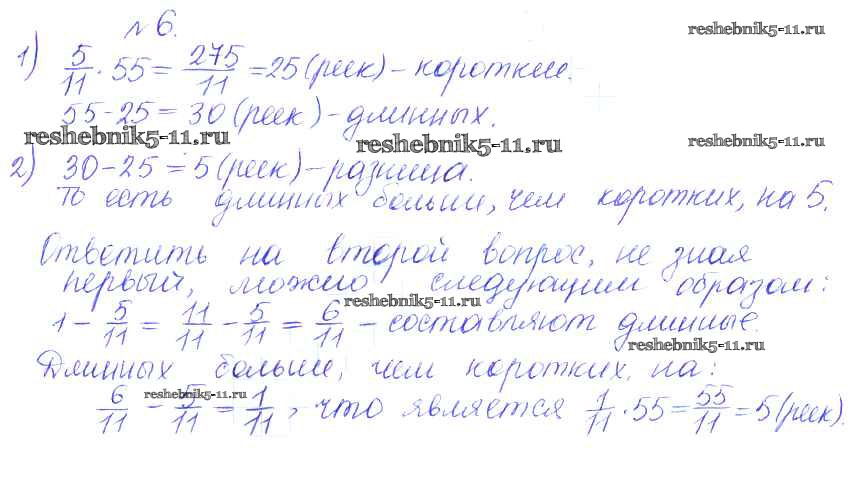 №6. reshebnik5-11.ru
1) 5/11 · 55 = 275/11 = 25 (реек) - короткие.
55 - 25 = 30 (реек) - длинных.
reshebnik5-11.ru reshebnik5-11.ru reshebnik5-11.ru
2) 30 - 25 = 5 (реек) - разница.
То есть длинных больше, чем коротких, на 5.
Ответить на второй вопрос, не зная
первый, можно следующим образом:
reshebnik5-11.ru
1 - 5/11 = 11/11 - 5/11 = 6/11 - составляют длинные.
reshebnik5-11.ru
Длинных больше, чем коротких, на:
reshebnik5-11.ru
6/11 - 5/11 = 1/11, что является 1/11 · 55 = 55/11 = 5 (реек).